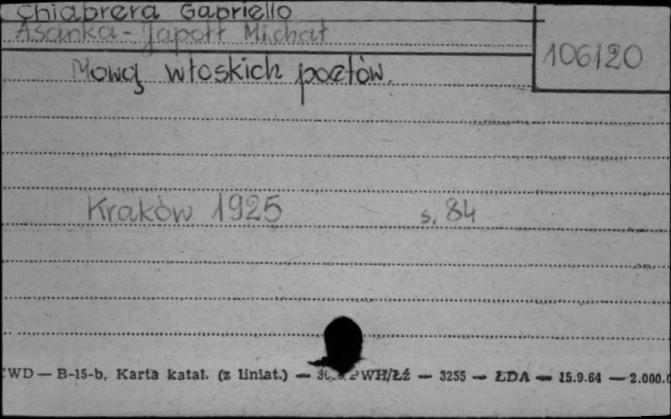 Chiabrera Gabriello
Asanka-Japołł Michał
106120
Mową włoskich poetów.
Kraków 1925 s. 84
CWD — B-15-b, Karta katal. (z liniat.) — WH/Łź — 3255 — ŁDA — 15.9.64 — 2.000.0